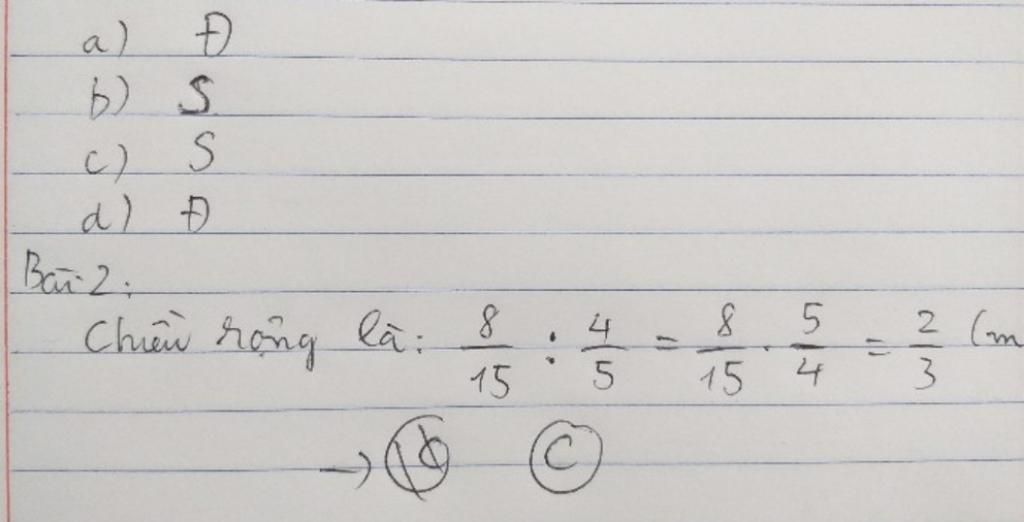 a) Đ
b) S
c) S
d) Đ
Bài 2:
Chiều rộng là: 8/15 : 4/5 = 8/15 . 5/4 = 2/3 (m
→ C